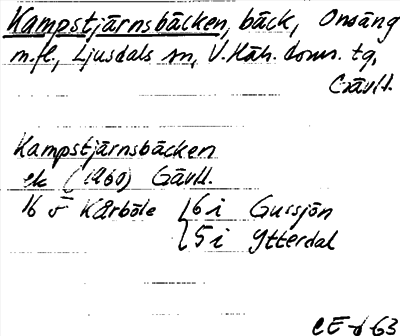 Kampstjärnsbäcken, bäck, Onsäng
m.fl., Ljusdals sn, V. Häls. doms. tg,
Gävll.
Kampstjärnsbäcken
ek (1960) Gävll.
16 Kårböle 6 i Gussjön
5 i Ytterdal
CE 63